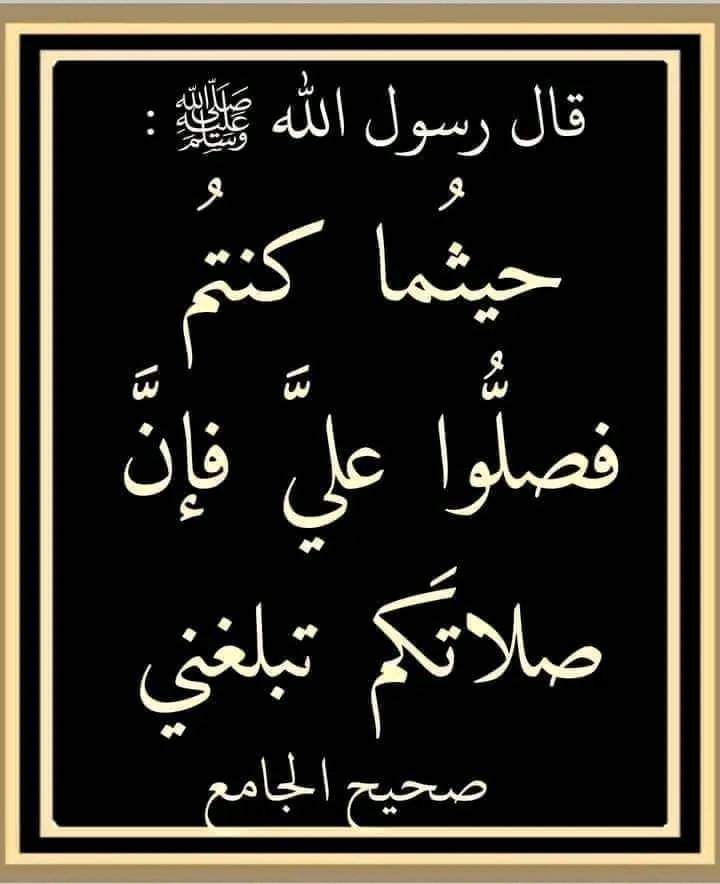 قال رسول الله ﷺ :
حيثُما كنتمُ
فصلُّوا عليَّ فإنَّ
صلاتَكم تبلغني
صحيح الجامع